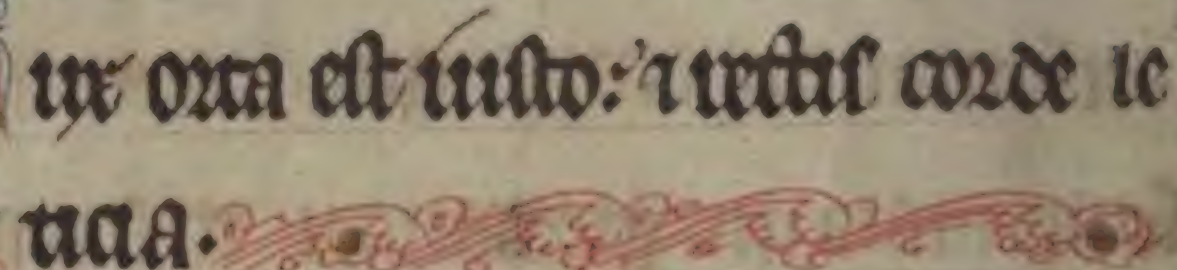 ux orta est iusto: ⁊ rectis corde le
ticia.